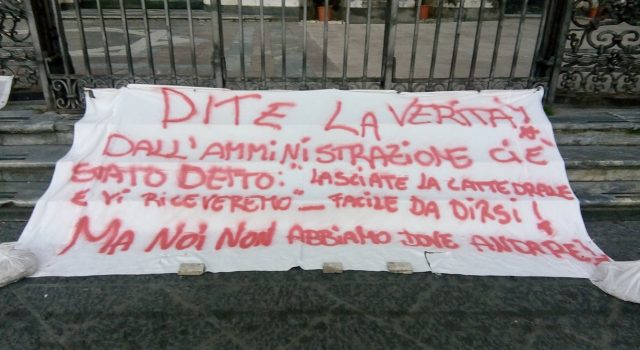 DITE LA VERITÀ!
DALL'AMMINISTRAZIONE CI È
STATO DETTO: "LASCIATE LA CATTEDRALE
E VI RICEVEREMO" _ FACILE DA DIRSI!
MA NOI NON ABBIAMO DOVE ANDARE!